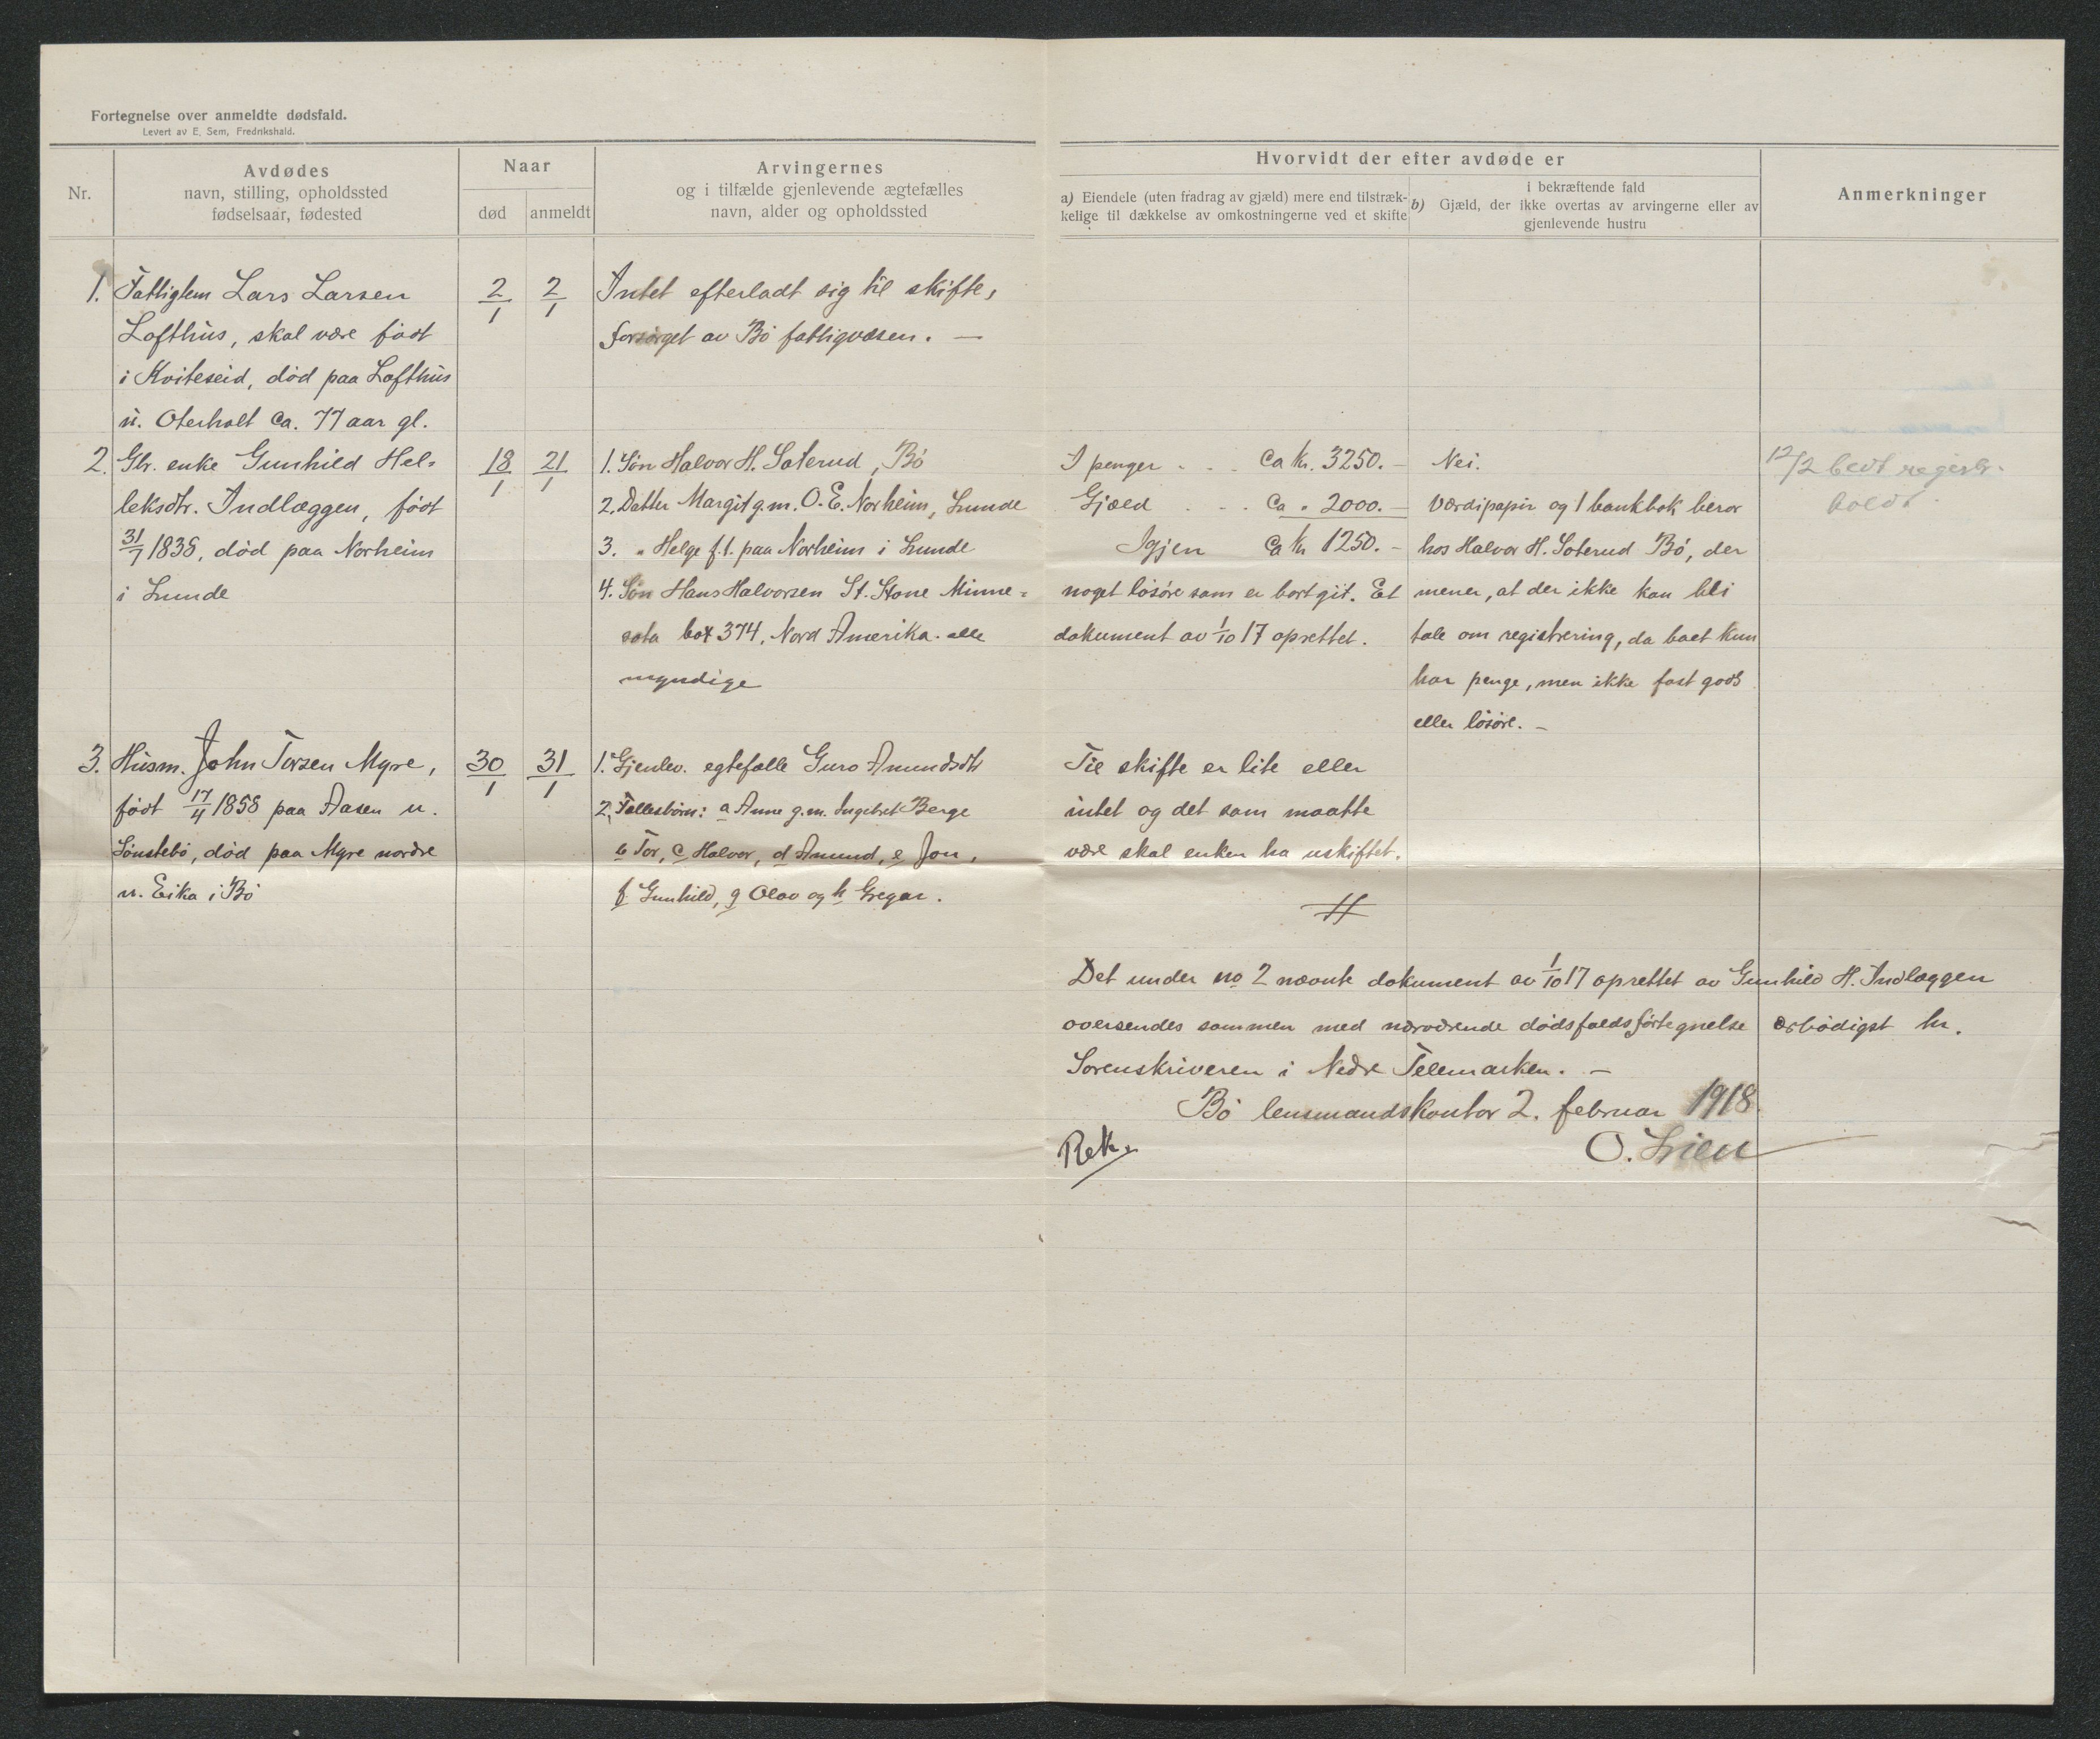 Fortegnelse over anmeldte dødsfald.
Levert av E. Sem, Fredrikshald.
Nr.
Avdødes
navn, stilling, opholdssted
fødselsaar, fødested
Naar
død
anmeldt
Arvingernes
og i tilfælde gjenlevende ægtefælles
navn, alder og opholdssted
Hvorvidt der efter avdøde er
a) Eiendele (uten fradrag av gjæld) mere end tilstræk-
kelige til dækkelse av omkostningerne ved et skifte
i bekræftende fald
b) Gjæld, der ikke overtas av arvingerne eller av
gjenlevende hustru
Anmerkninger
1. Fattiglem Lars Larsen
Lofthus, skal være født
i Kviteseid, død paa Lofthus
u. Oterholt ca. 77 aar gl.
2/1
2/1
Intet efterladt sig til skifte,
forsørget av Bø fattigvæsen. —
2. Gbr. enke Gunhild Hel-
leksdtr. Indlæggen, født
31/7 1838, død paa Norheim
i Lunde
18/1
21/1
1. Søn Halvor H. Soterud, Bø
2. Datter Margit g.m. O. E. Norheim, Lunde
3. " Helge f.t. paa Norheim i Lunde
4. Søn Hans Halvorsen St. Stone Minne-
sota box 374, Nord Amerika. alle
myndige
I penger . . . Ca kr. 3250. —
Gjæld . . . Ca " 2000. —
Igjen Ca kr 1250. —
noget løsøre som er bortgit. Et
dokument av 1/10 17 oprettet.
Nei.
Værdipapir og 1 bankbok beror
hos Halvor H. Soterud Bø, der
mener, at der ikke kan bli
tale om registrering, da boet kun
har penge, men ikke fast gods
eller løsøre. —
12/2 bedt registr.
holdt.
3. Husm. John Torsen Myre,
født 17/4 1858 paa Aasen u.
Sønstebø, død paa Myre nordre
u. Eika i Bø
30/1
31/1
1. Gjenlev. egtefælle Guro Amundsdtr
2. Fællesbørn: a Anne g.m. Ingebret Berge
b Tor, c Halvor, d Amund, e Jon,
f Gunhild, g Olav og h Gregar.
Til skifte er lite eller
intet og det som maatte
være skal enken ha uskiftet.
Det under no 2 nævnte dokument av 1/10 17 oprettet av Gunhild H. Indlæggen
oversendes sammen med nærværende dødsfaldsfortegnelse ærbødigst hr.
Sorenskriveren i Nedre Telemarken. —
Bø lensmandskontor 2. februar 1918.
O. Lien
Rek.